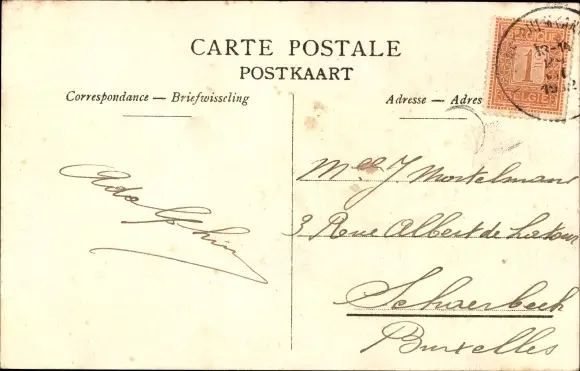 CARTE POSTALE
POSTKAART
Correspondance — Briefwisseling
Adresse — Adres
1
13-14
Mlle J Mortelmans
3 Rue Albert de Latour
Schaerbeek
Bruxelles